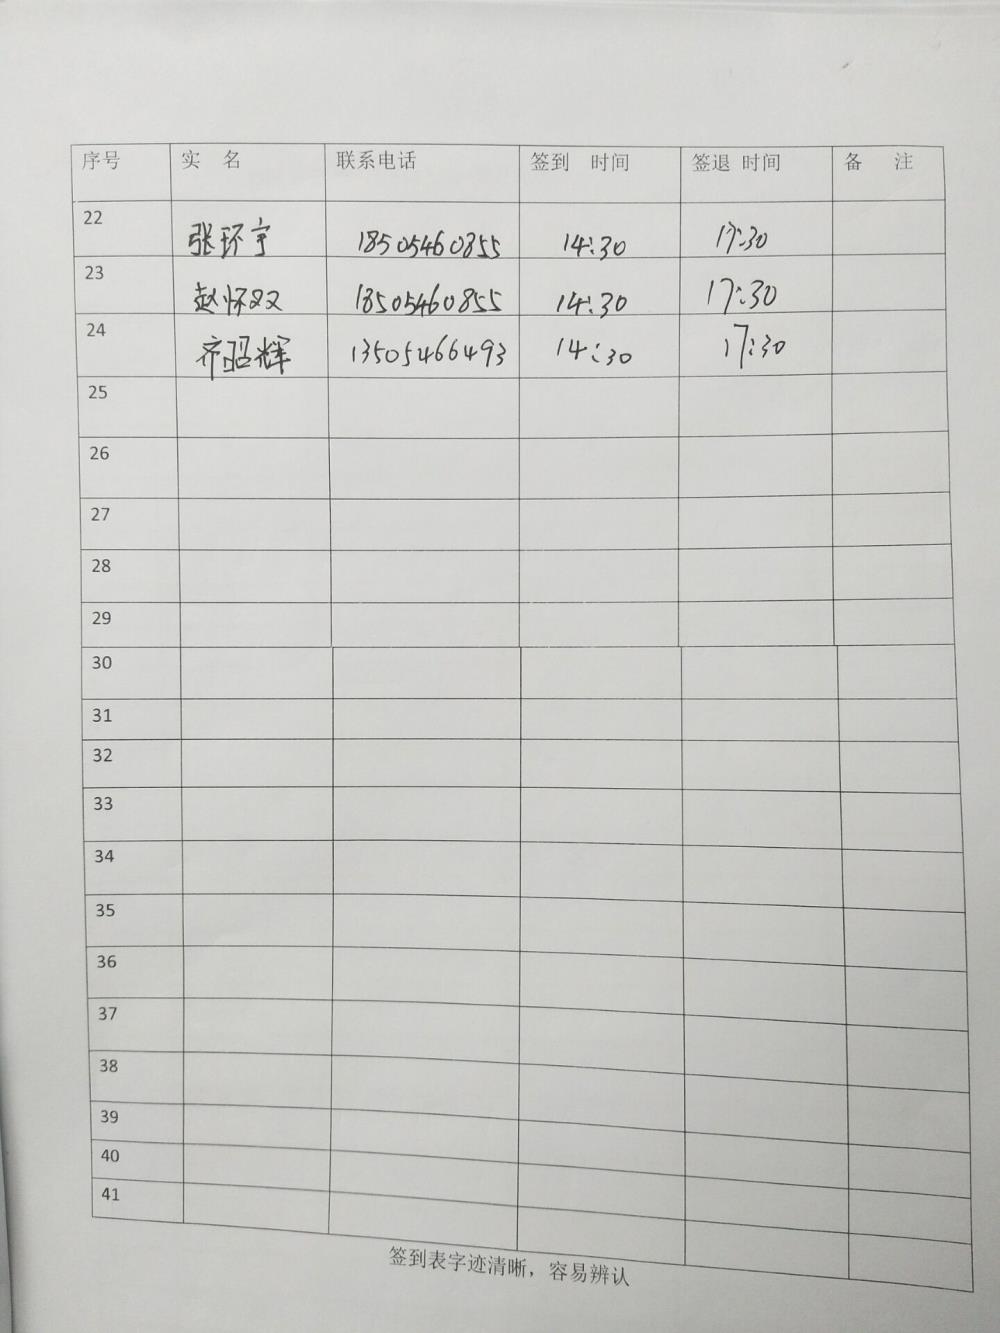 序号 实 名 联系电话 签到 时间 签退 时间 备 注
22 张环宇 18505460855 14:30 17:30
23 赵怀双 18505460855 14:30 17:30
24 齐昭辉 13505466493 14:30 17:30
25
26
27
28
29
30
31
32
33
34
35
36
37
38
39
40
41
签到表字迹清晰，容易辨认